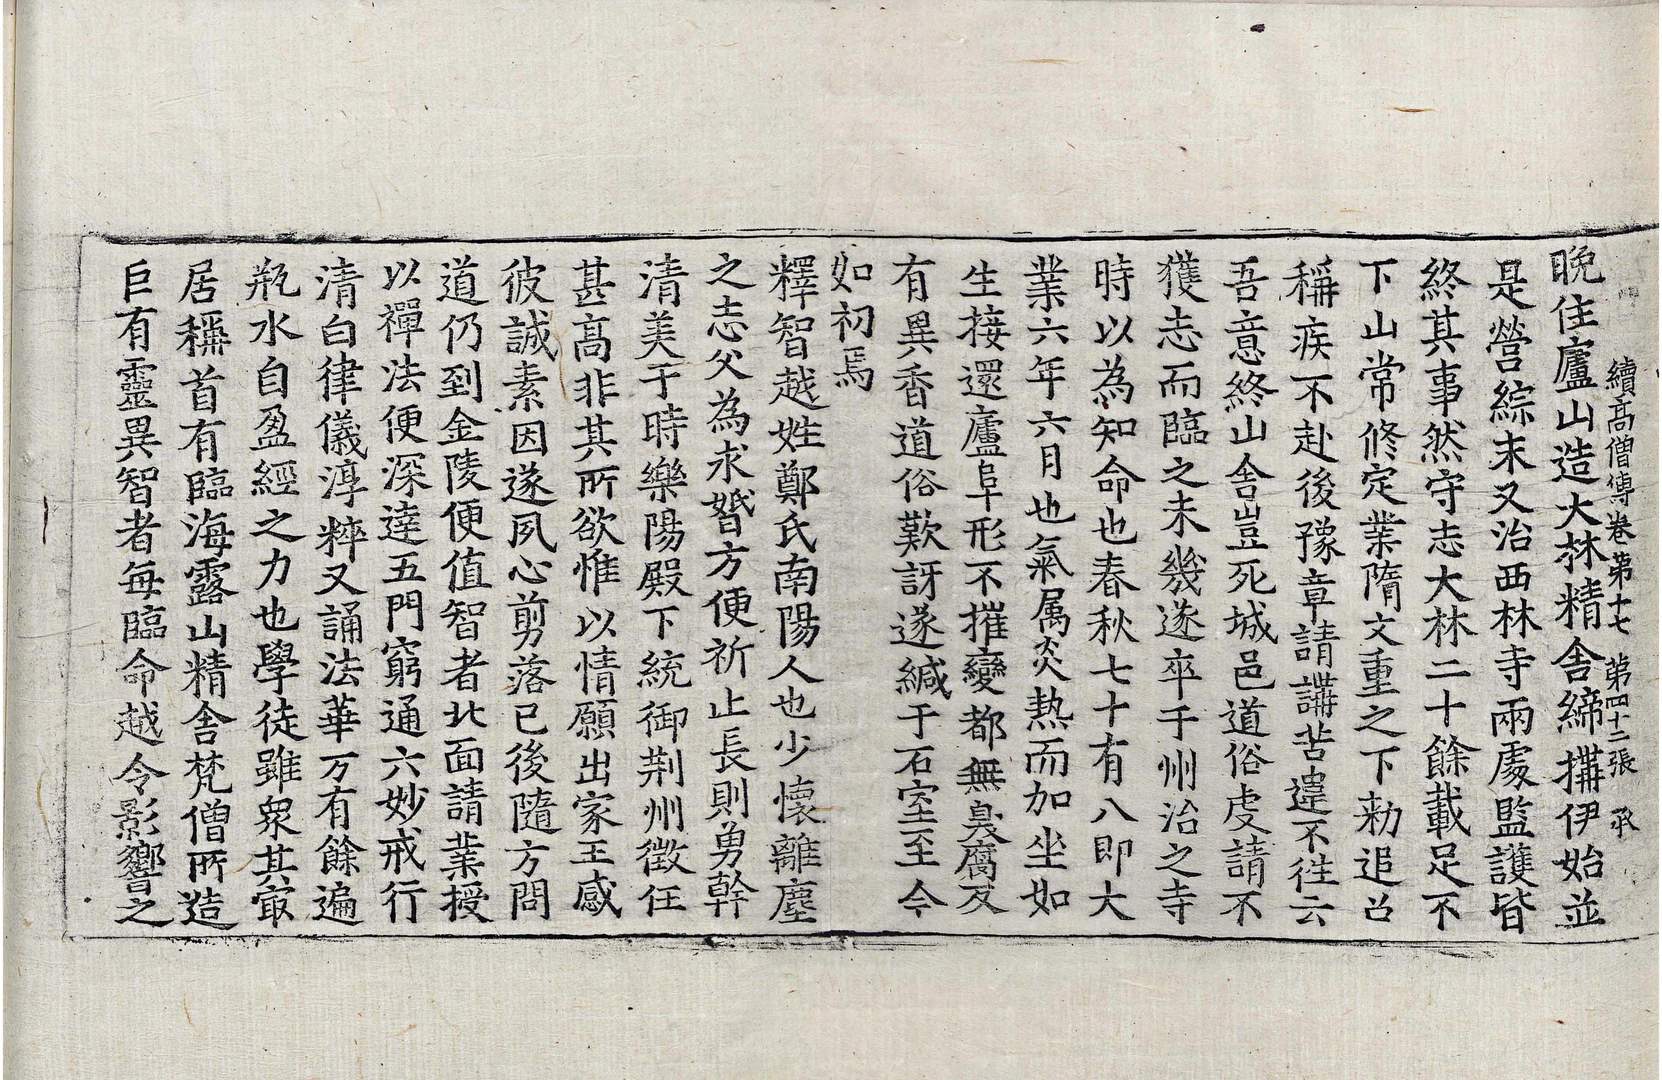 續高僧傳卷第十七 第四十二張 承
晚住廬山造大林精舍締搆伊始並
是營綜末又治西林寺兩處監護皆
終其事然守志大林二十餘載足不
下山常修定業隋文重之下勑追召
稱疾不赴後豫章請講苦違不徃云
吾意終山舍豈死城邑道俗虔請不
獲志而臨之未幾遂卒于州治之寺
時以為知命也春秋七十有八即大
業六年六月也氣属炎熱而加坐如
生接還廬阜形不摧變都無臭腐反
有異香道俗歎訝遂緘于石室至今
如初焉
釋智越姓鄭氏南陽人也少懷離塵
之志父為求婚方便祈止長則勇幹
清美于時樂陽殿下統御荆州徵任
甚高非其所欲惟以情願出家王感
彼誠素因遂夙心剪落已後隨方問
道仍到金陵便值智者北面請業授
以禪法便深達五門窮通六妙戒行
清白律儀淳粹又誦法華万有餘遍
瓶水自盈經之力也學徒雖衆其㝡
居稱首有臨海露山精舍梵僧所造
巨有靈異智者每臨命越令影響之